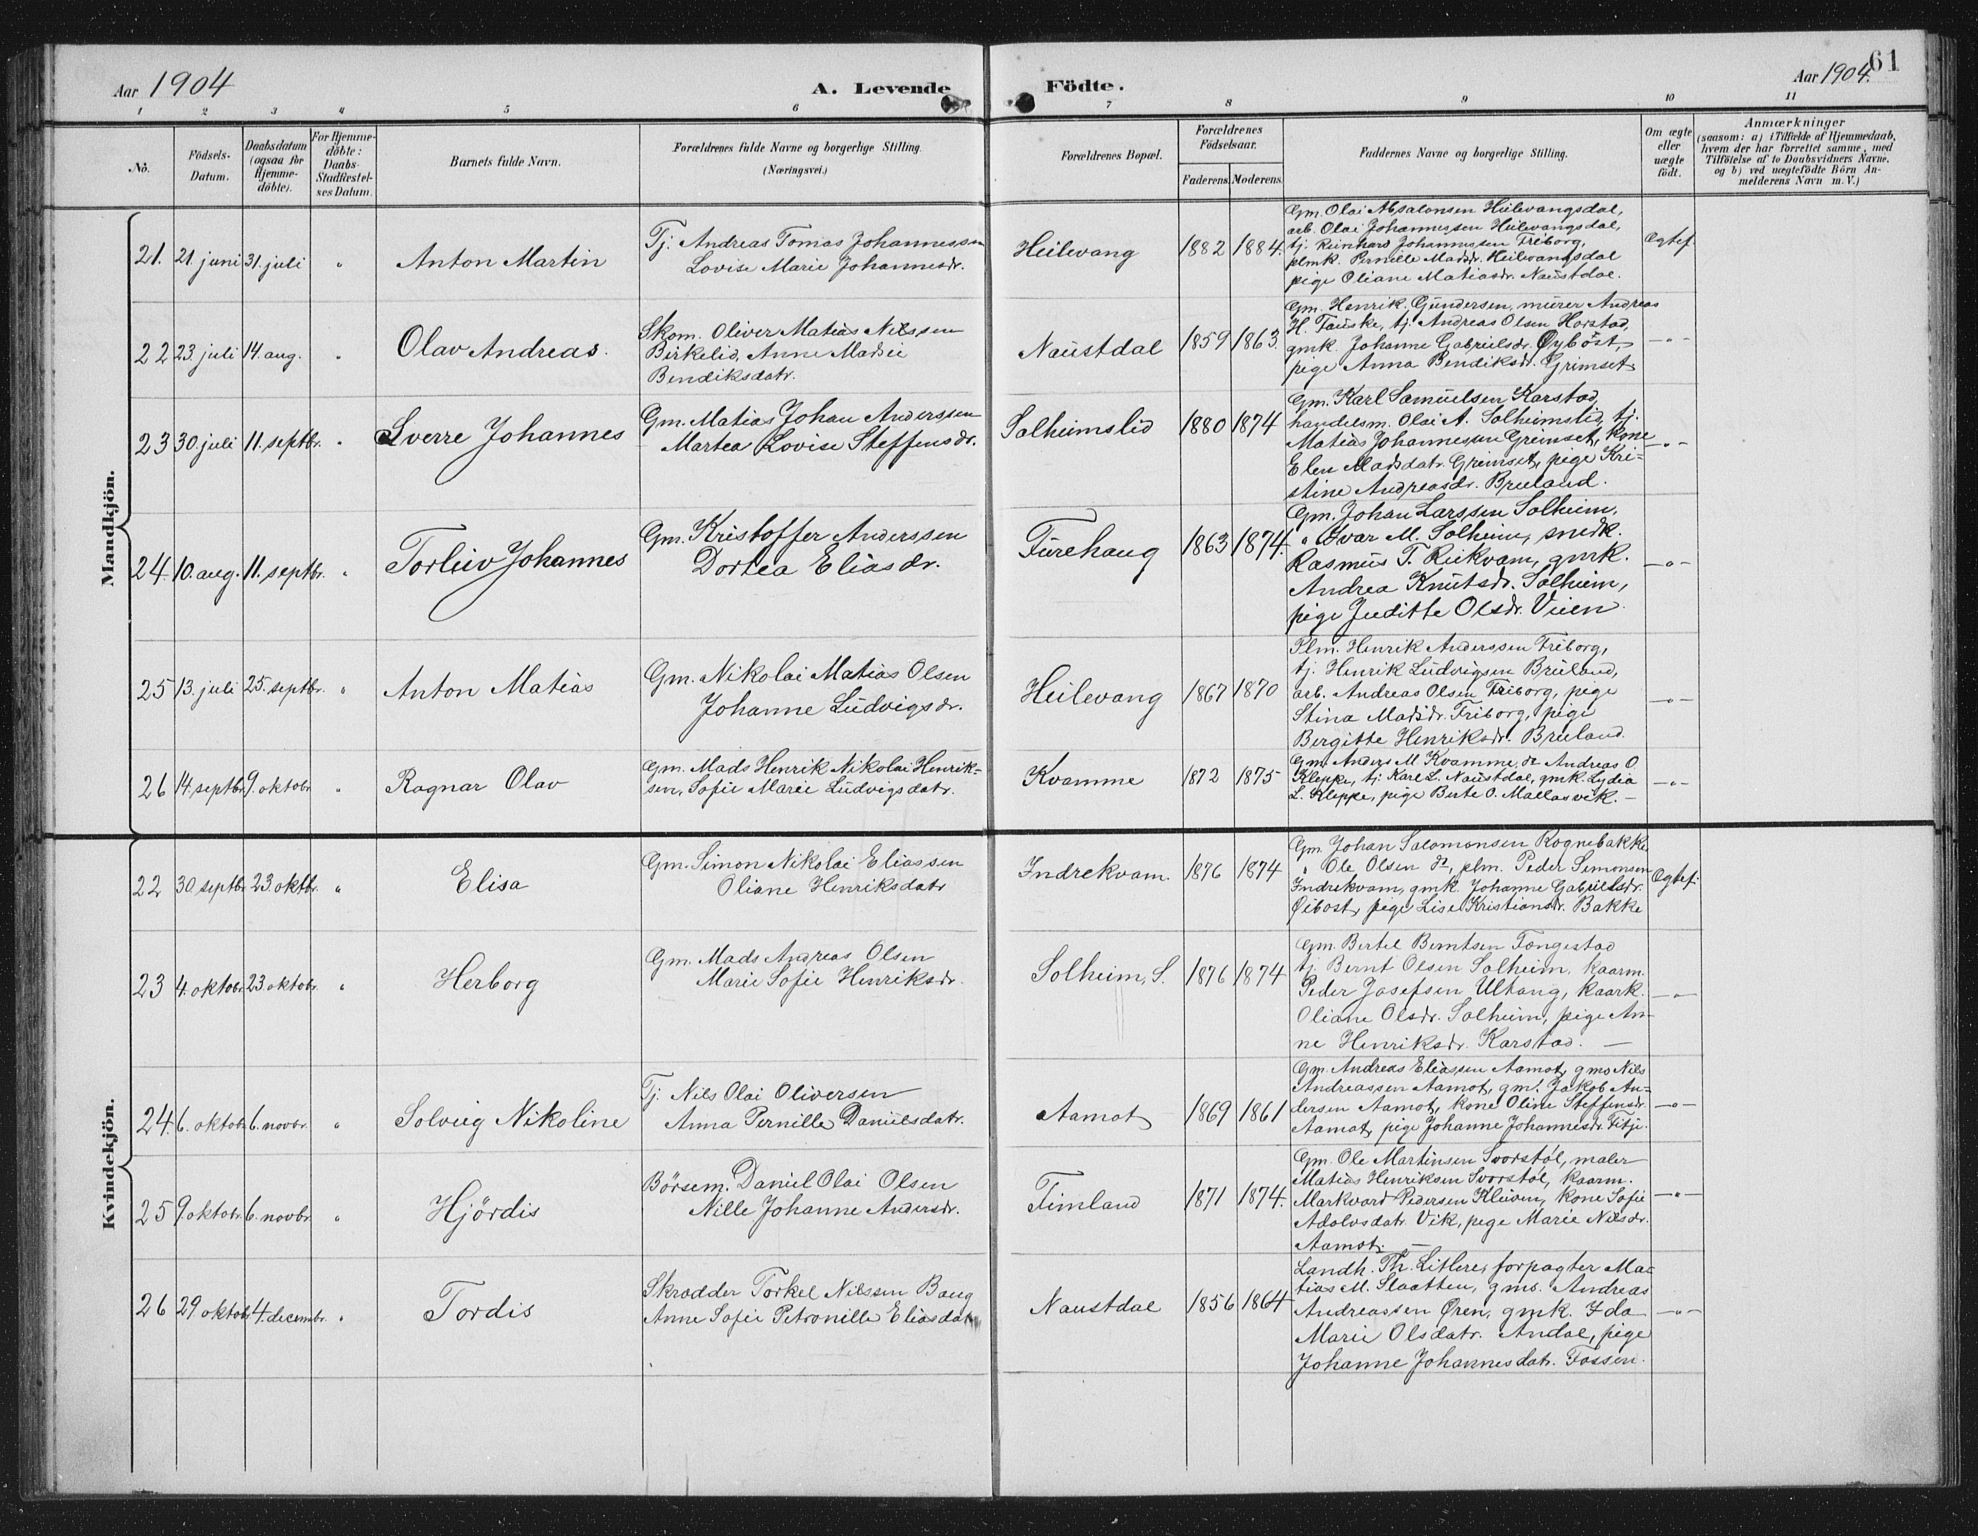 Aar 1904
A. Levende
Födte.
Aar 1904.
61
1 2 3 4 5 6 7 8 9 10 11
No.
Födsels-
Datum.
Daabsdatum
(ogsaa for
Hjemme-
döbte).
For Hjemme-
döbte:
Daabs-
Stadfæstel-
ses Datum.
Barnets fulde Navn.
Forældrenes fulde Navne og borgerlige Stilling.
(Næringsvei.)
Forældrenes Bopæl.
Forældrenes
Födselsaar.
Faderens. Moderens.
Faddernes Navne og borgerlige Stilling.
Om ægte
eller
uægte
födt.
Anmærkninger
(saasom: a) i Tilfælde af Hjemmedaab,
hvem der har forrettet samme, med
Tilföielse af to Daabsvidners Navne,
og b) ved uægtefödte Börn An-
melderens Navn m. V.)
Mandkjön.
21. 21. juni 31. juli " Anton Martin
Tj. Andreas Tomas Johannessen
Lovise Marie Johannesdr.
Heilevang 1882 1884.
Gm. Olai Absalonsen Heilevangsdal,
arb. Olai Johannessen Heilevangsdal,
tj. Reinhard Johannessen Friborg,
plmk. Pernille Madsdr. Heilevangsdal
pige Oliane Matiasdr. Naustdal.
Ægtef.
22 23. juli 14. aug. " Olav Andreas.
Skom. Oliver Matias Nilssen
Birkelid, Anne Madsie
Bendiksdatr.
Naustdal 1859 1863.
Gm. Henrik Gundersen, murer Andreas
H. Fauske, tj. Andreas Olsen Horstad,
gmk. Johanne Gabrielsdr. Øyböst,
pige Anna Bendiksdr. Grimset
—"—
23 30. juli 11. septbr. " Sverre Johannes
Gm. Matias Johan Anderssen
Martea Lovise Steffensdr.
Solheimslid 1880 1874
Gm. Karl Samuelsen Karstad,
handelsm. Olai A. Solheimslid, tj.
Matias Johannessen Grimset, kone
Elen Madsdatr. Grimset, pige Kri-
stine Andreasdr. Bruland.
—"—
24. 10. aug. 11. septbr. " Torleiv Johannes
Gm. Kristoffer Anderssen
Dortea Eliasdr.
Furehaug 1863 1874.
Gm. Johan Larssen Solheim,
" Ivar M. Solheim, snedk.
Rasmus T. Reikvam, gmk.
Andrea Knutsdr. Solheim,
pige Juditte Olsdr. Vien.
—"—
25 13. juli 25. septbr. " Anton Matias
Gm. Nikolai Matias Olsen
Johanne Ludvigsdr.
Heilevang 1867 1870
Plm. Henrik Anderssen Friborg,
tj. Henrik Ludvigsen Bruland,
arb. Andreas Olsen Friborg, pige
Stina Madsdr. Friborg, pige
Bergitte Henriksdr. Bruland.
—"—
26 14. septbr. 9. oktobr. " Ragnar Olav
Gm. Mads Henrik Nikolai Henrik-
sen, Sofie Marie Ludvigsdatr.
Kvamme 1872 1875
Gm. Anders M Kvamme, do Andreas O
Kleppe, tj. Karl L. Naustdal, gmk. Lydia
L. Kleppe, pige Berte O. Mallasvik. —
—"—
Kvindekjön.
22 30. septbr. 23. oktbr. " Elisa
Gm. Simon Nikolai Eliassen
Oliane Henriksdatr
Indrekvam. 1876 1874
Gm. Johan Salomonsen Rognebakke
" Ole Olsen do, plm. Peder Simonsen
Indrekvam, gmk. Johanne Gabrielsdr.
Øibost, pige Lise Kristiansdr. Bakke
Ægtef.
23 4. oktobr. 23. oktobr. " Herborg
Gm. Mads Andreas Olsen
Marie Sofie Henriksdr.
Solheim, S. 1876 1874.
Gm. Bertel Berntsen Tængestad
tj. Bernt Olsen Solheim, kaarm.
Peder Josefsen Ultang, kaark.
Oliane Olsdr. Solheim, pige An-
ne Henriksdr. Karstad. —
—"—
24. 6. oktobr. 6. novbr. " Solveig Nikoline
Tj. Nils Olai Oliversen
Anna Pernille Danielsdatr.
Aamot 1869 1861
Gm. Andreas Eliassen Aamot, gms Nils
Andreassen Aamot, gm. Jakob An-
dersen Aamot, kone Oline Steffensdr.
Aamot, pige Johanne Johannesdr. Fitje.
—"—
25 9. oktobr. 6. novbr. " Hjördis
Börsem. Daniel Olai Olsen
Nille Johanne Andersdr.
Fimland 1871 1874.
Gm. Ole Martinsen Svorstøl, maler
Matias Henriksen Svorstøl, kaarm.
Markvard Pedersen Kleiven, kone Sofie
Adolvsdatr. Vik, pige Marie Nilsdr.
Aamot. —
—"—
26 29 oktobr. 4. decembr. " Tordis
Skrædder Torkel Nilssen Baug
Anne Sofie Petronille Eliasdatr.
Naustdal 1856 1864
Landh. Th. Litlere, forpagter Ma-
tias M. Slaatten, gms. Andreas
Andreassen Øren, gmk. Ida
Marie Olsdatr. Andal, pige
Johanne Johannesdatr. Fossen.
—"—